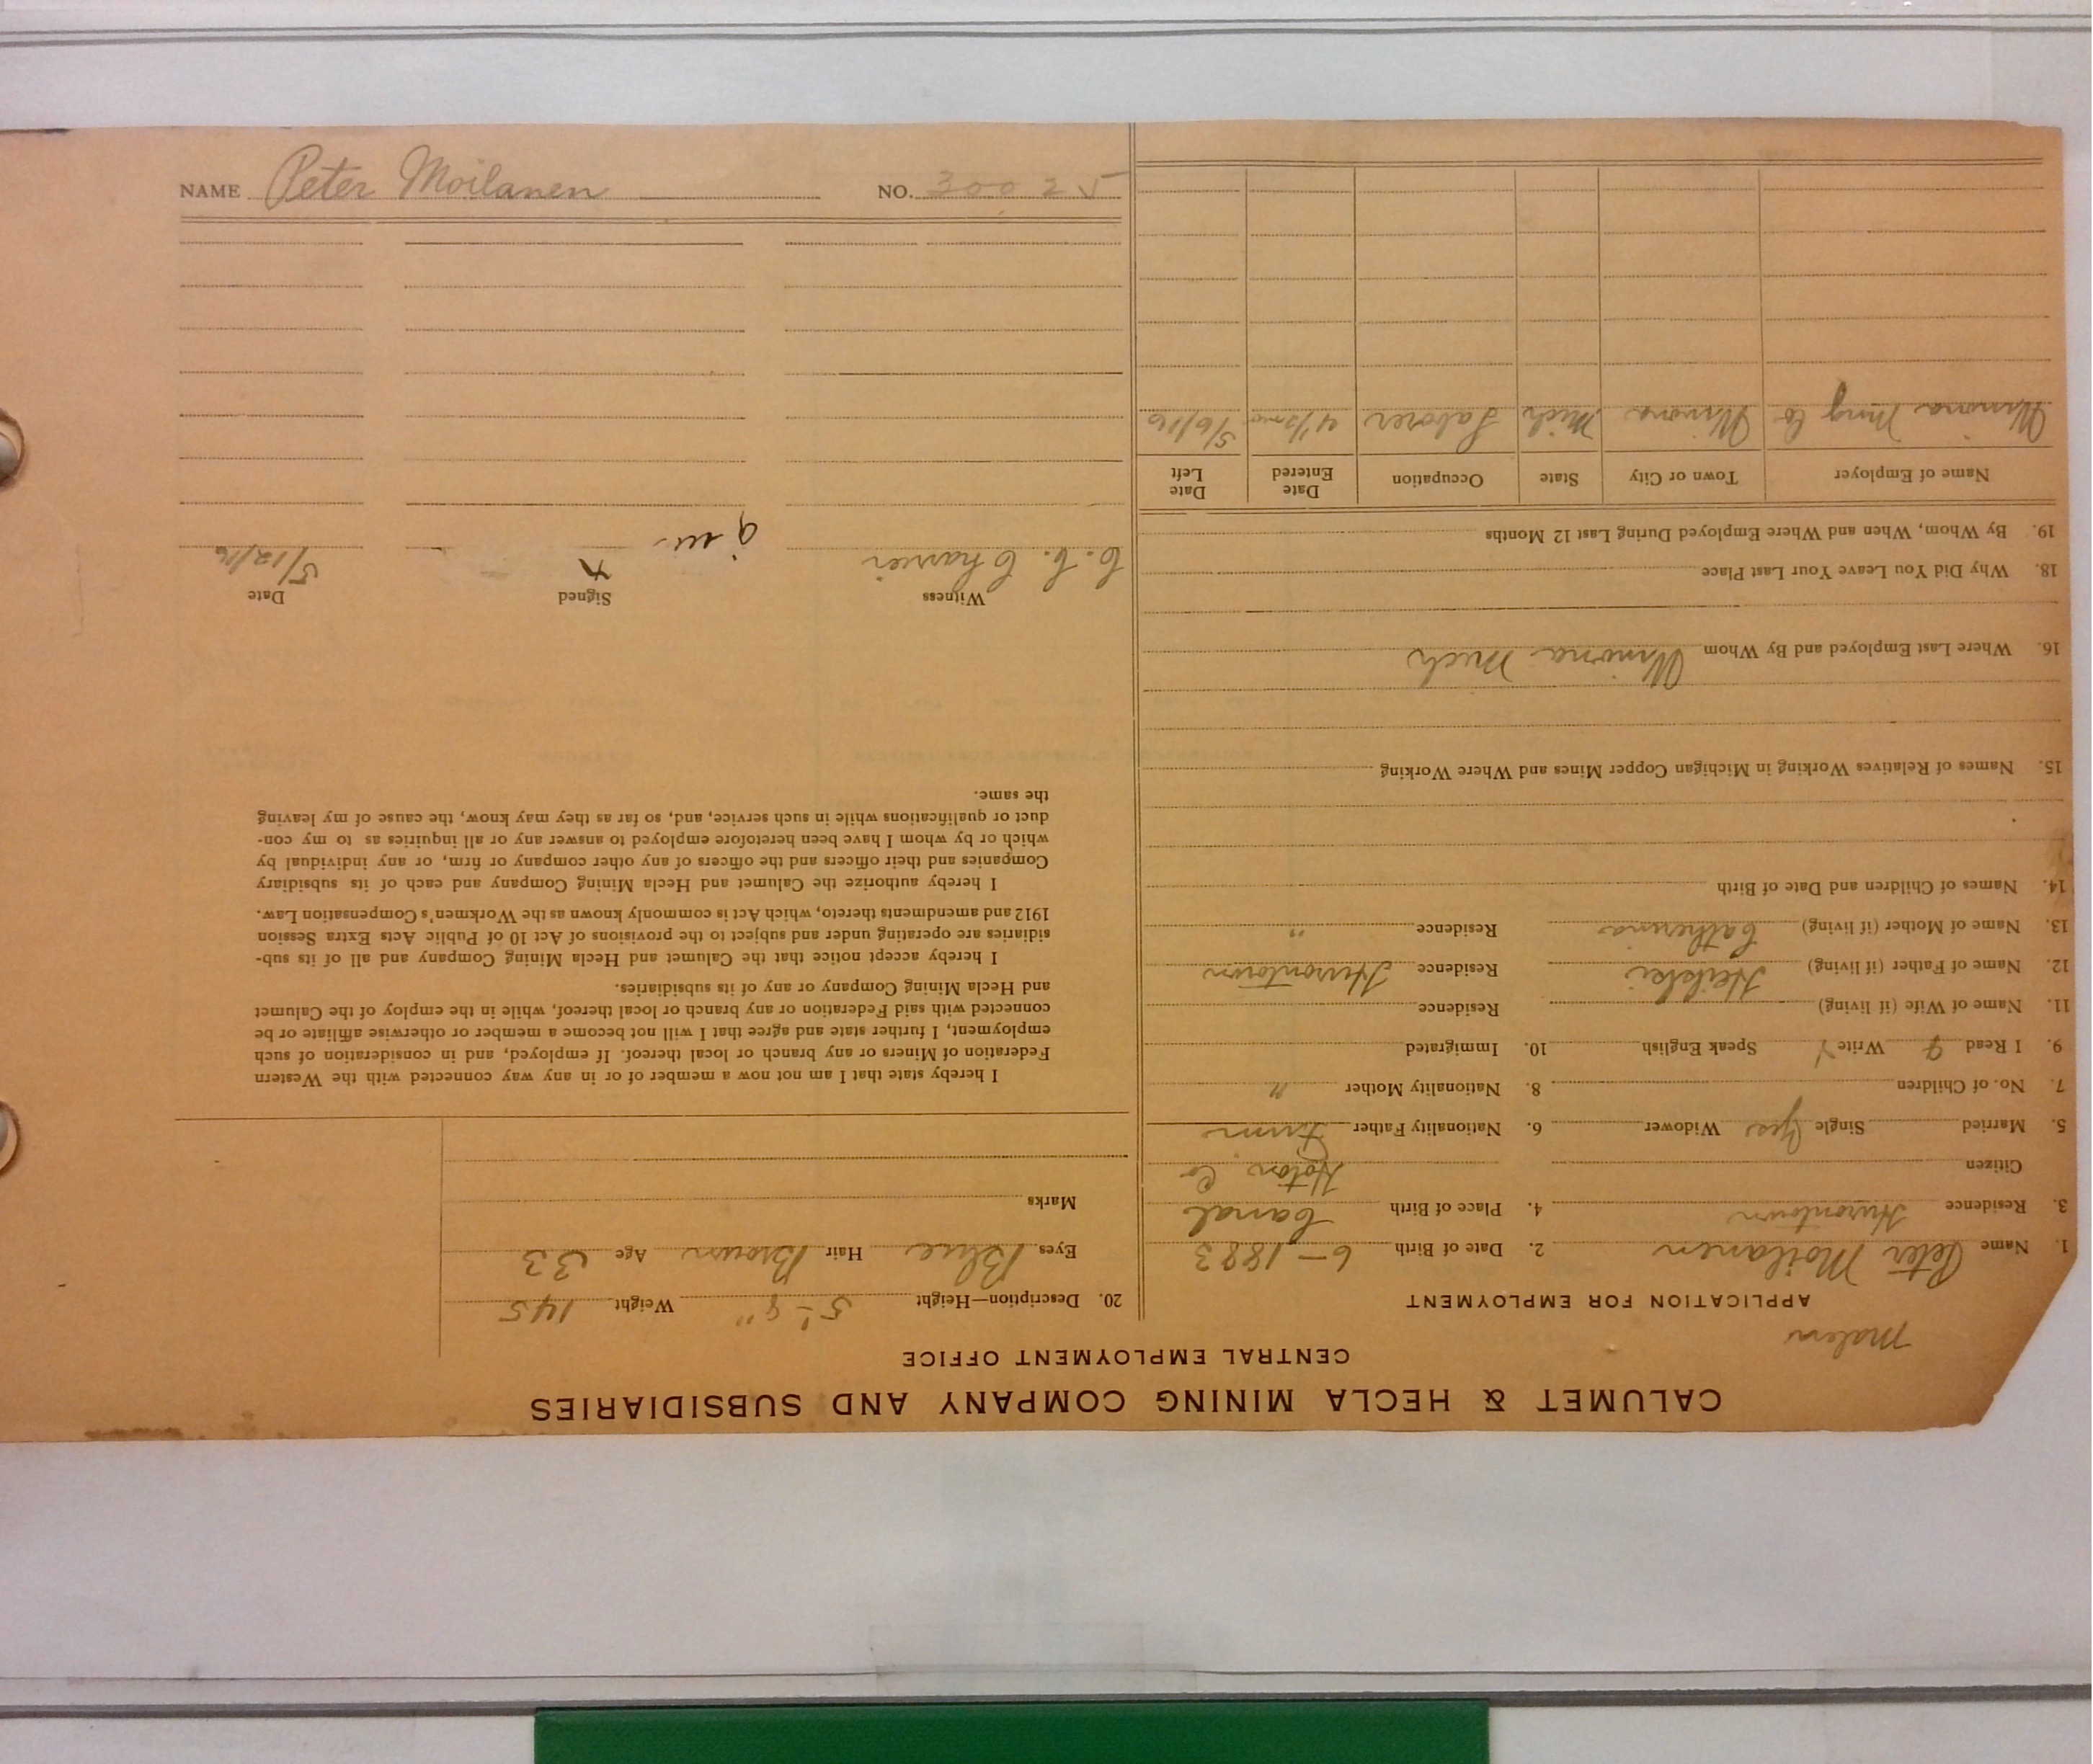 NAME Peter Moilanen NO. 30025
CALUMET & HECLA MINING COMPANY AND SUBSIDIARIES
CENTRAL EMPLOYMENT OFFICE
APPLICATION FOR EMPLOYMENT
1. Name Peter Moilanen 2. Date of Birth 6-1883
3. Residence Hurontown 4. Place of Birth Canal
Citizen Hoton Co
5. Married Single Yes Widower 6. Nationality Father Finn
7. No. of Children 8. Nationality Mother "
9. I Read Y Write Y Speak English 10. Immigrated
11. Name of Wife (if living) Residence
12. Name of Father (if living) Heikki Residence Hurontown
13. Name of Mother (if living) Catherina Residence "
14. Names of Children and Date of Birth
15. Names of Relatives Working in Michigan Copper Mines and Where Working
16. Where Last Employed and By Whom Winona Mich
18. Why Did You Leave Your Last Place
19. By Whom, When and Where Employed During Last 12 Months
Name of Employer Town or City State Occupation Date Entered Date Left
Winona Ming Co Winona Mich Laborer 5/6/16
20. Description—Height 5'-8" Weight 145
Eyes Blue Hair Brown Age 33
Marks
I hereby state that I am not now a member of or in any way connected with the Western
Federation of Miners or any branch or local thereof. If employed, and in consideration of such
employment, I further state and agree that I will not become a member or otherwise affiliate or be
connected with said Federation or any branch or local thereof, while in the employ of the Calumet
and Hecla Mining Company or any of its subsidiaries.
I hereby accept notice that the Calumet and Hecla Mining Company and all of its sub-
sidiaries are operating under and subject to the provisions of Act 10 of Public Acts Extra Session
1912 and amendments thereto, which Act is commonly known as the Workmen's Compensation Law.
I hereby authorize the Calumet and Hecla Mining Company and each of its subsidiary
Companies and their officers and the officers of any other company or firm, or any individual by
which or by whom I have been heretofore employed to answer any or all inquiries as to my con-
duct or qualifications while in such service, and, so far as they may know, the cause of my leaving
the same.
Witness Signed Date
C. C. X 5/12/16